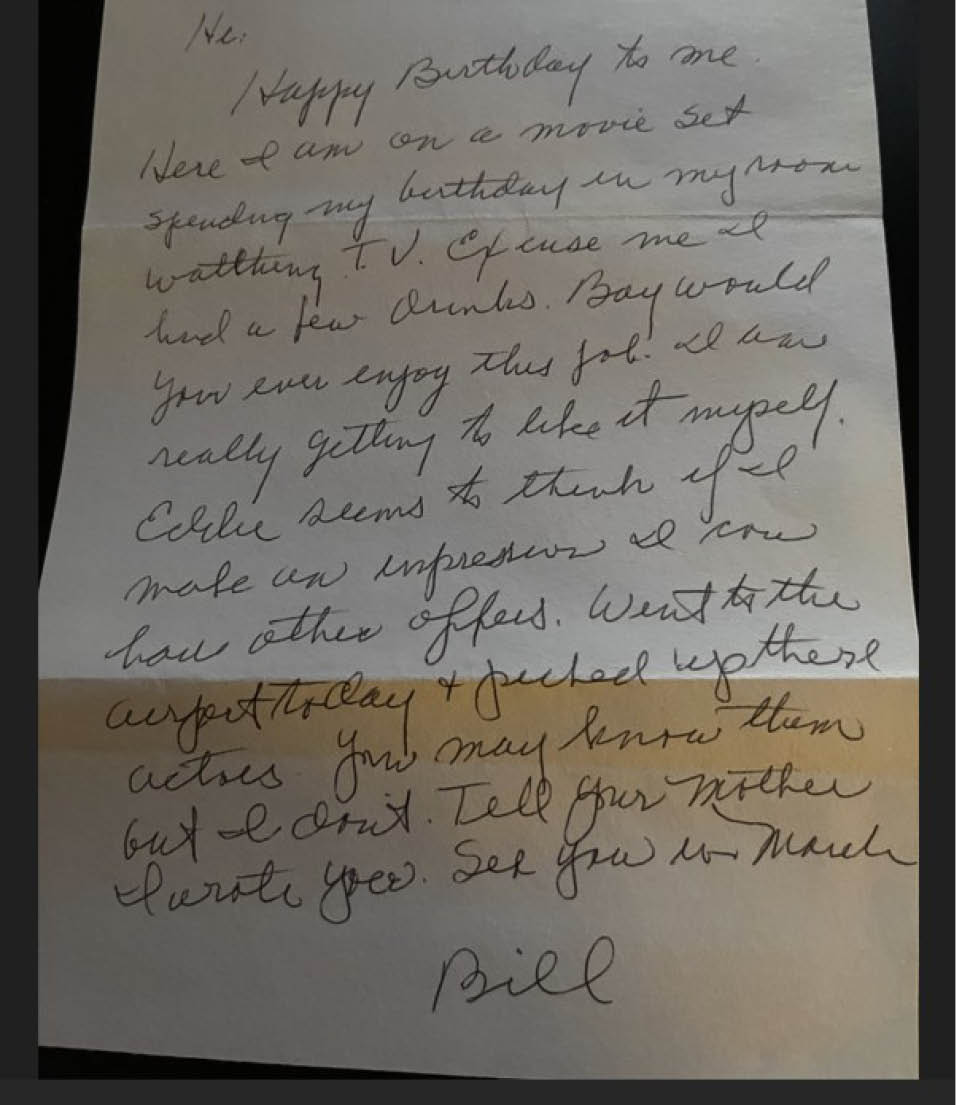 Hi:
Happy Birthday to me.
Here I am on a movie set
spending my birthday in my room
watthing T.V. Excuse me I
had a few drinks. Boy would
you ever enjoy this job. I am
really getting to like it myself.
Eddie seems to think if I
make an impression I can
have other offers. Went to the
airport today + picked up these
actors you may know them
but I don't. Tell your Mother
I wrote you. See you in March
Bill